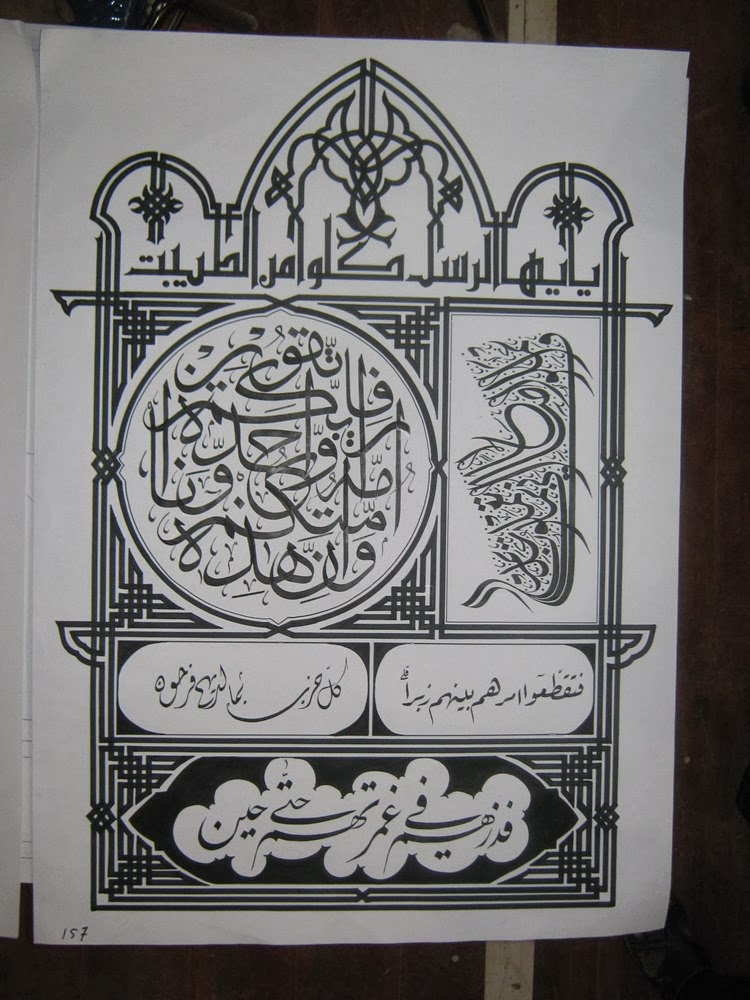 يايها الرسل كلوا من الطيبت
وان هذه امتكم امة واحدة وانا ربكم فاتقون
فتقطعوا امرهم بينهم زبراً
كل حزب بما لديهم فرحون
فذرهم في غمرتهم حتى حين
157